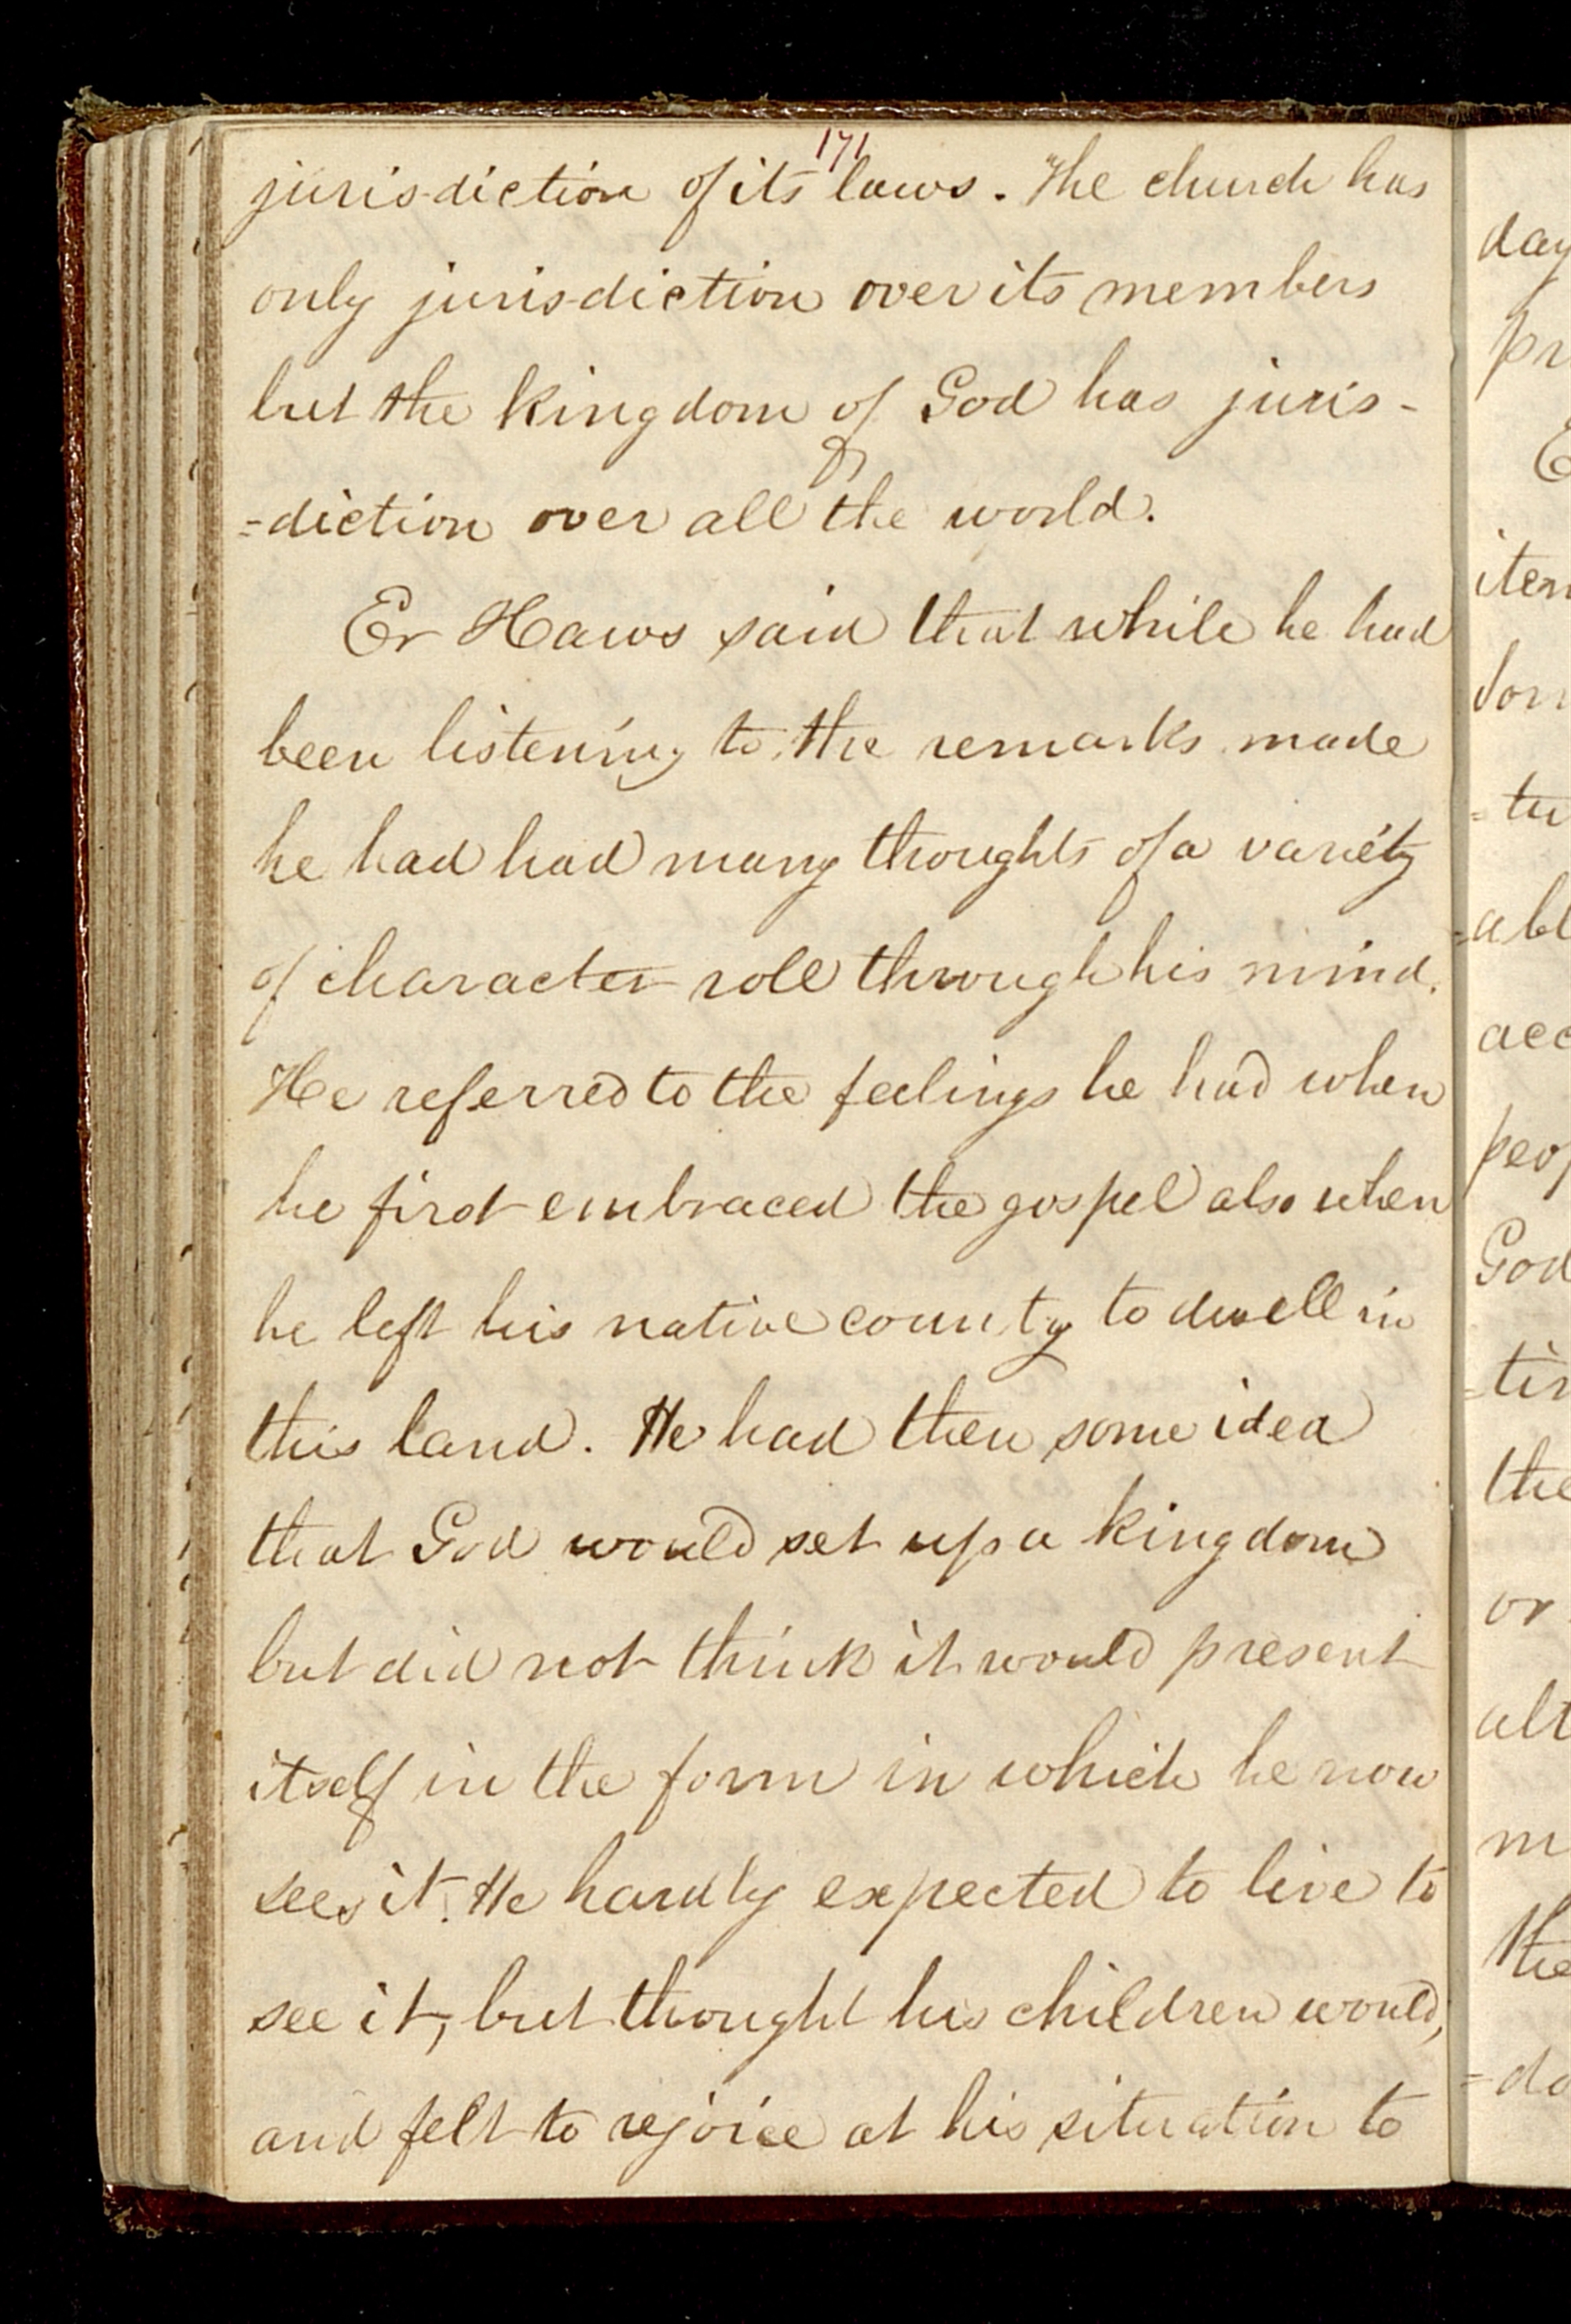 171
jurisdiction of its laws. The church has
only jurisdiction over its members
but the kingdom of God has juris-
=diction over all the world.
Er Haws said that while he had
been listening to the remarks made
he had had many thoughts of a variety
of character roll through his mind.
He referred to the feelings he had when
he first embraced the gospel also when
he left his native county to dwell in
this land. He had then some idea
that God would set up a kingdom
but did not think it would present
itself in the form in which he now
sees it. He hardly expected to live to
see it, but thought his children would,
and felt to rejoice at his situation to
day
pr
E
item
dom
=tu
=abl
acc
peop
God
=tin
the
or
alt
m
the
=do